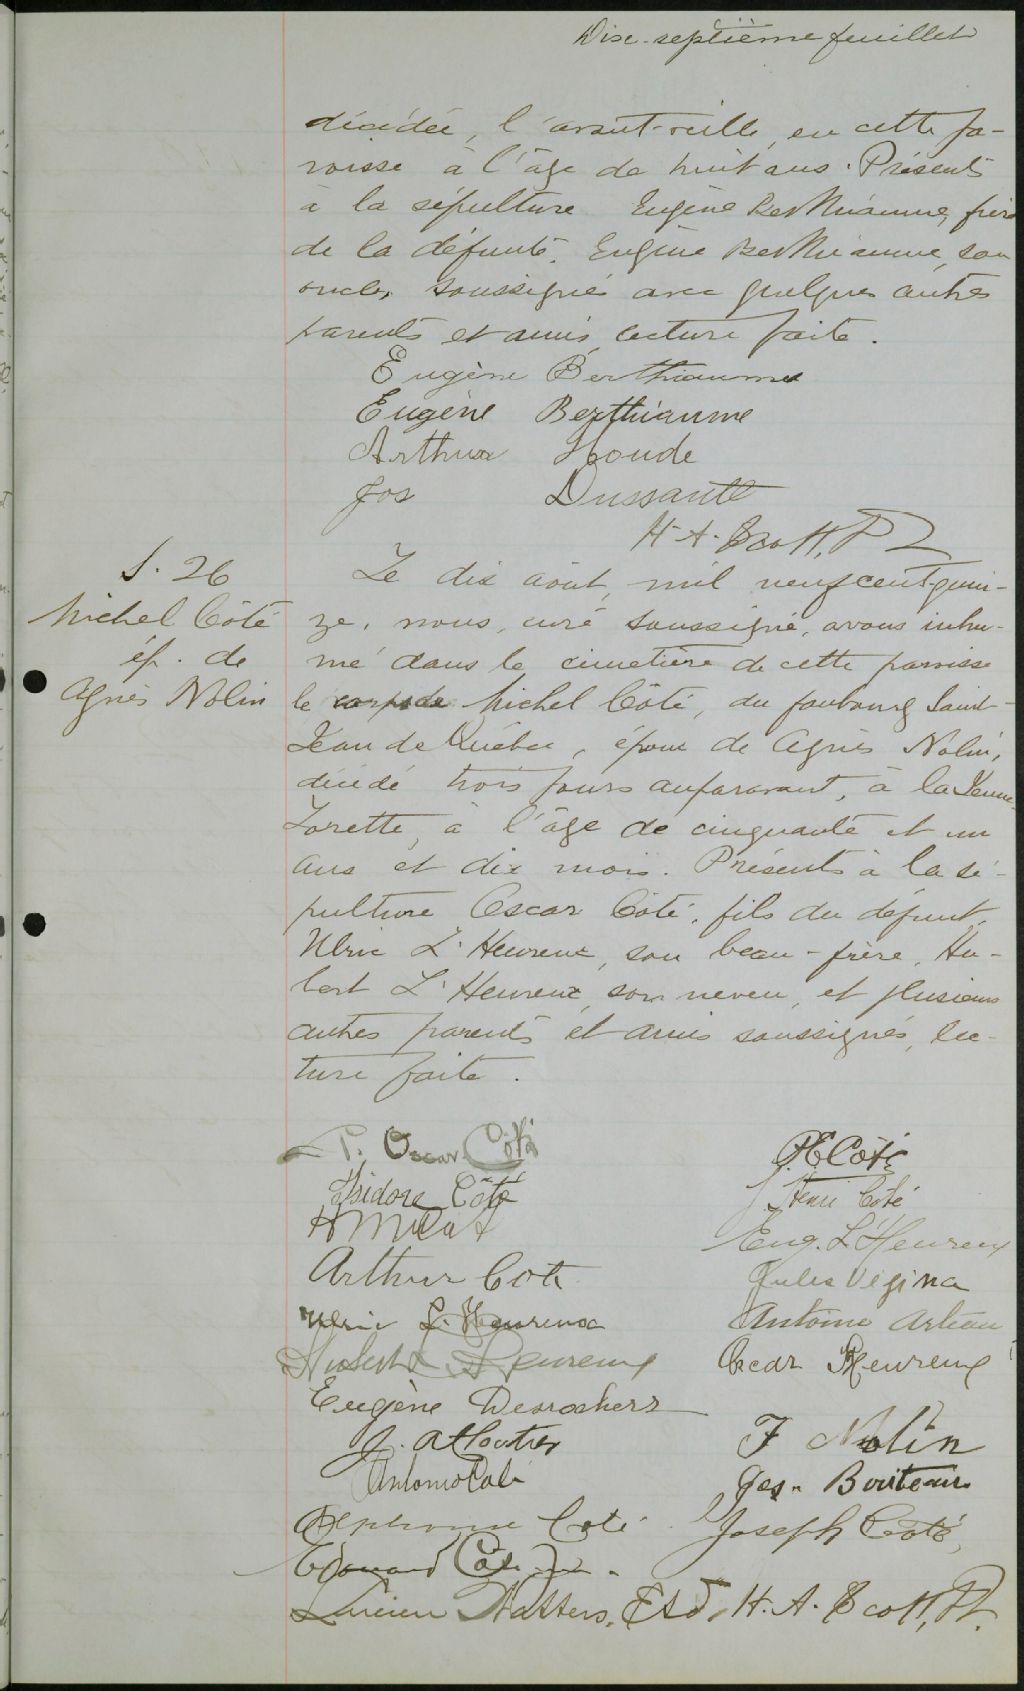 Dix-septième feuillet
décédée, l'avant-veille, en cette pa-
roisse à l'âge de huit ans. Présents
à la sépulture Eugène Berthiaume, frère
de la défunte, Eugène Berthiaume, son
oncle, soussignés avec quelques autres
parents et amis, lecture faite.
Eugène Berthiaume
Eugène Berthiaume
Arthur Houde
Jos Dussault
H. A. Scott, Ptre
S. 26
Michel Côté
ép. de
Agnès Nolin
Le dix août, mil neuf cent quin-
ze, nous, curé soussigné, avons inhu-
mé dans le cimetière de cette paroisse
le corps de Michel Côté, du faubourg Saint-
Jean de Québec, époux de Agnès Nolin,
décédé trois jours auparavant, à la Jeune-
Lorette, à l'âge de cinquante et un
ans et dix mois. Présents à la sé-
pulture Oscar Côté, fils du défunt,
Ulric L'Heureux, son beau-frère, Hu-
bert L'Heureux, son neveu, et plusieurs
autres parents et amis soussignés, lec-
ture faite.
P. Oscar Côté
P.E. Côté
Isidore Côté
J. Henri Côté
Eug. L'Heureux
Arthur Coté
Jules Vézina
Ulric L. Heureux
Antoine Arteau
Hubert L Heureux
Oscar L'Heureux
Eugène Desrochers
J. A Cloutier
F Nolin
Antonio Coté
Jos. Boiteau
Alphonse Coté
Joseph Coté
Edouard Coté
Lucien Watters, Etd, H. A. Scott, Pt.